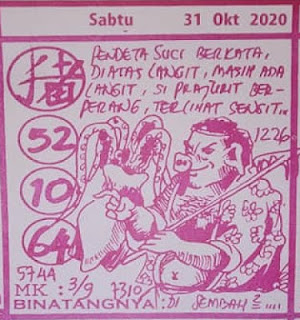 Sabtu 31 Okt 2020
PENDETA SUCI BERKATA,
DIATAS LANGIT, MASIH ADA
LANGIT, SI PRAJURIT BER-
PERANG, TERLIHAT SENGIT...
52
1226
10
64
5744
MK : 3/9 7310
BINATANGNYA : DI SEMBAH 2 ....